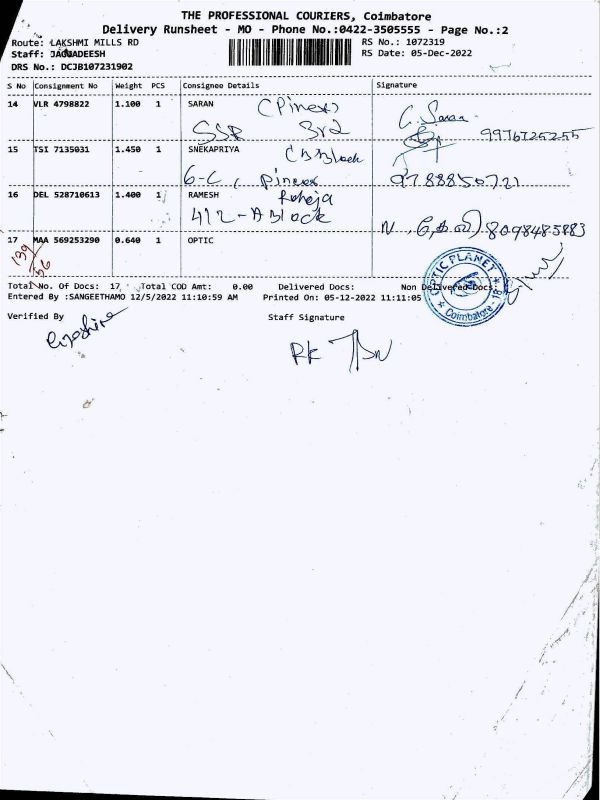 THE PROFESSIONAL COURIERS, Coimbatore
Delivery Runsheet - MO - Phone No.:0422-3505555 - Page No.:2
Route: LAKSHMI MILLS RD
RS No.: 1072319
Staff: JAGUADEESH
RS Date: 05-Dec-2022
DRS No.: DCJB107231902
S No Consignment No Weight PCS Consignee Details Signature
14 VLR 4798822 1.100 1 SARAN (Pinex)
SSR 3r2
C. Saran
9976725255
15 TSI 7135031 1.450 1 SNEKAPRIYA
C B Block
6-C, Pinex
9788850721
16 DEL 528710613 1.400 1 RAMESH Raheja
412-A Block
8098485883
17 MAA 569253290 0.640 1 OPTIC
139
OPTIC PLANET
Coimbatore - 18
Total No. Of Docs: 17 Total COD Amt: 0.00 Delivered Docs: Non Delivered Docs:
Entered By :SANGEETHAMO 12/5/2022 11:10:59 AM Printed On: 05-12-2022 11:11:05
Verified By
Staff Signature